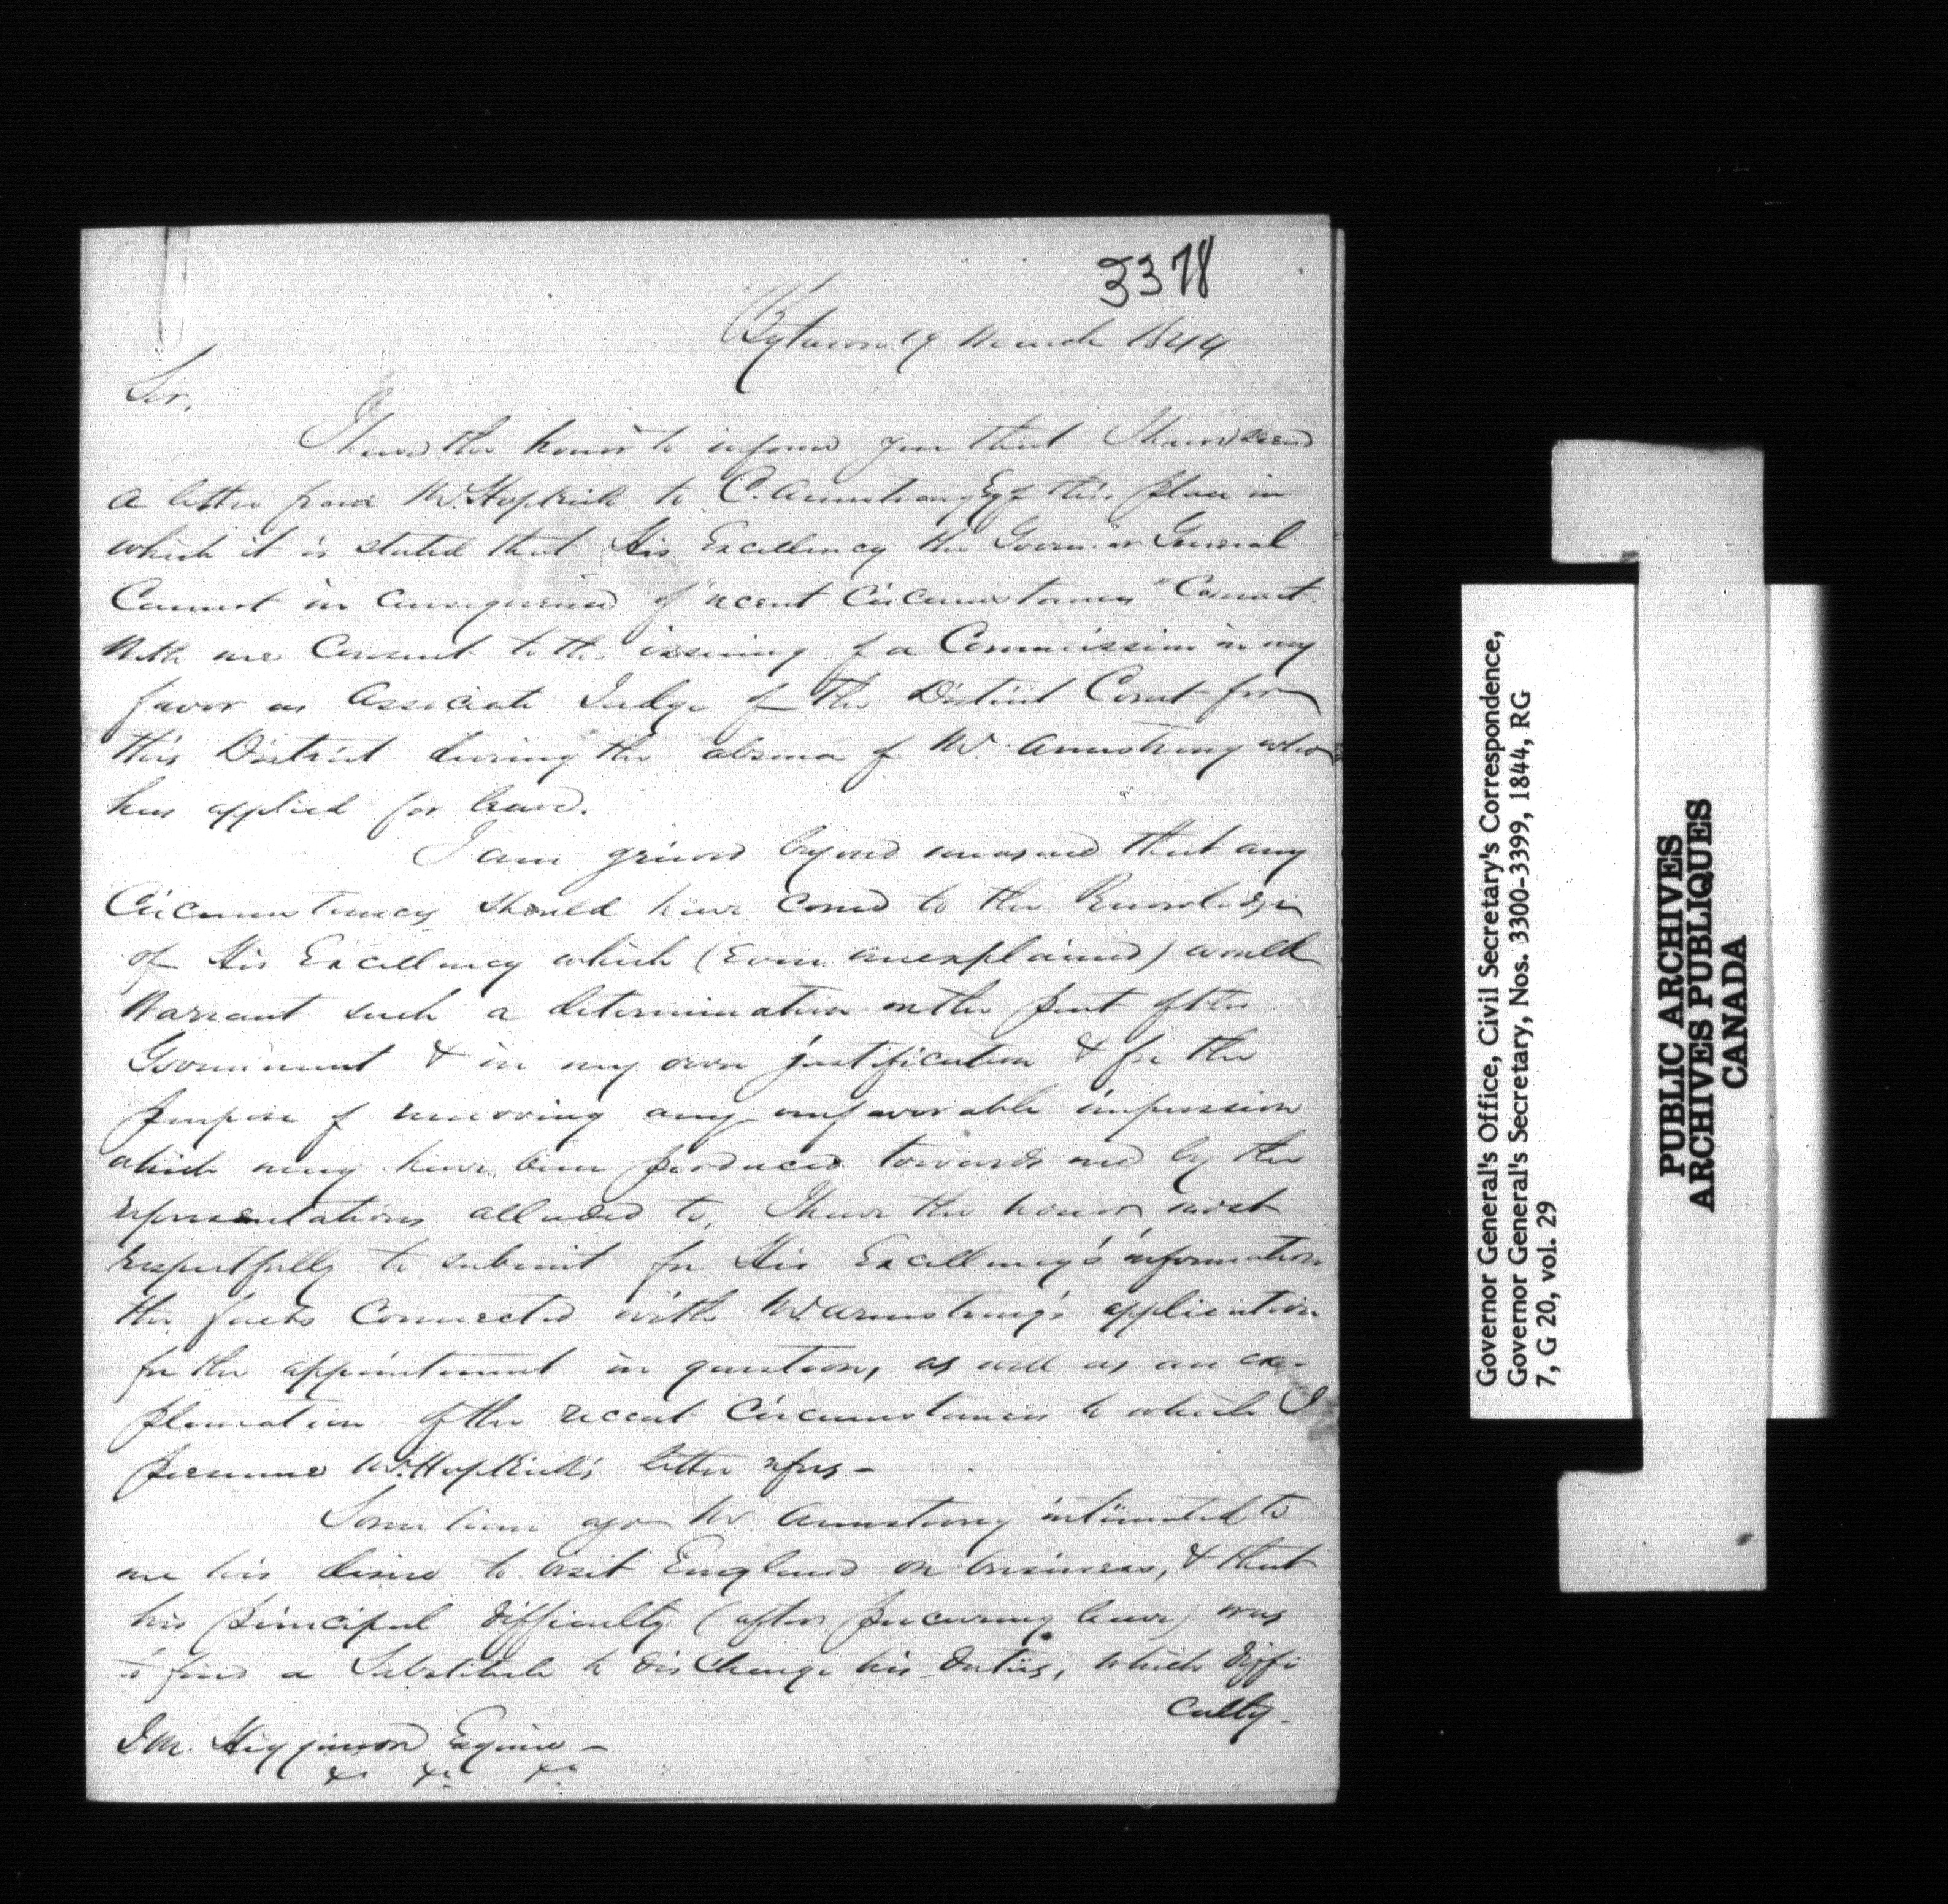 3378
Bytown 19 March 1844
Sir,
I have the honor to inform you that I have seen
a letter from Mr. Hopkirk to C. Armstrong Esq of this place in
which it is stated that His Excellency the Governor General
Cannot in consequence of "recent Circumstances" Connect-
with me Consent to the issuing of a Commission in my
favor as Associate Judge of the District Court for
this District during the absence of Mr. Armstrong who
has applied for leave.
I am grieved beyond measure that any
Circumstances should have come to the knowledge
of His Excellency which (even unexplained) would
Warrant such a determination on the part of the
Government & in my own justification & for the
purpose of removing any unfavorable impression
which may have been produced towards me by the
representations alluded to, I have the honor most
respectfully to submit for His Excellency's information
the facts Connected with Mr Armstrong's application
for the appointment in question, as well as an ex-
planation of the recent Circumstances to which I
presume Mr. Hopkirk's letter refers -
Some time ago Mr Armstrong intimated to
me his desire to visit England on business, & that
his principal difficulty (after procuring leave) was
to find a Substitute to discharge his duties, which diffi
culty -
J M. Higginson Esquire -
&c &c &c
Governor General's Office, Civil Secretary's Correspondence,
Governor General's Secretary, Nos. 3300-3399, 1844, RG
7, G 20, vol. 29
PUBLIC ARCHIVES
ARCHIVES PUBLIQUES
CANADA